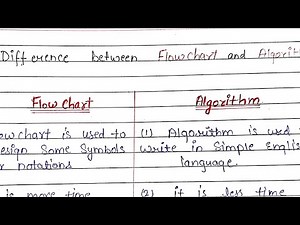 Difference between Flowchart and Algorit
Flow Chart
Algorithm
owchart is used to
esign Some Symbols
r notations
(1) Algorithm is used
write in Simple Englis
language.
is more time
(2) it is less time